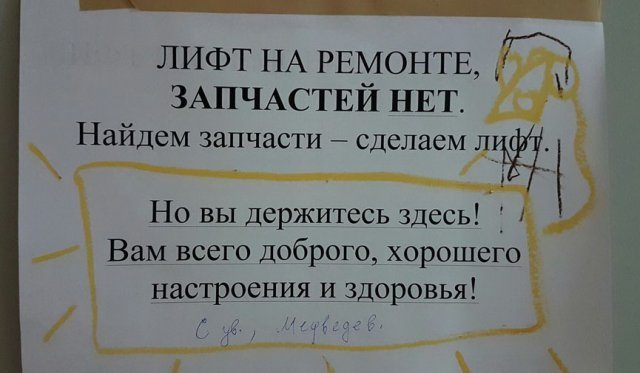 ЛИФТ НА РЕМОНТЕ,
ЗАПЧАСТЕЙ НЕТ.
Найдем запчасти – сделаем лифт.
Но вы держитесь здесь!
Вам всего доброго, хорошего
настроения и здоровья!
С ув., Медведев.